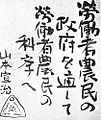 勞働者農民の
政府を
勞働者農民の
科学へ
山本宣治